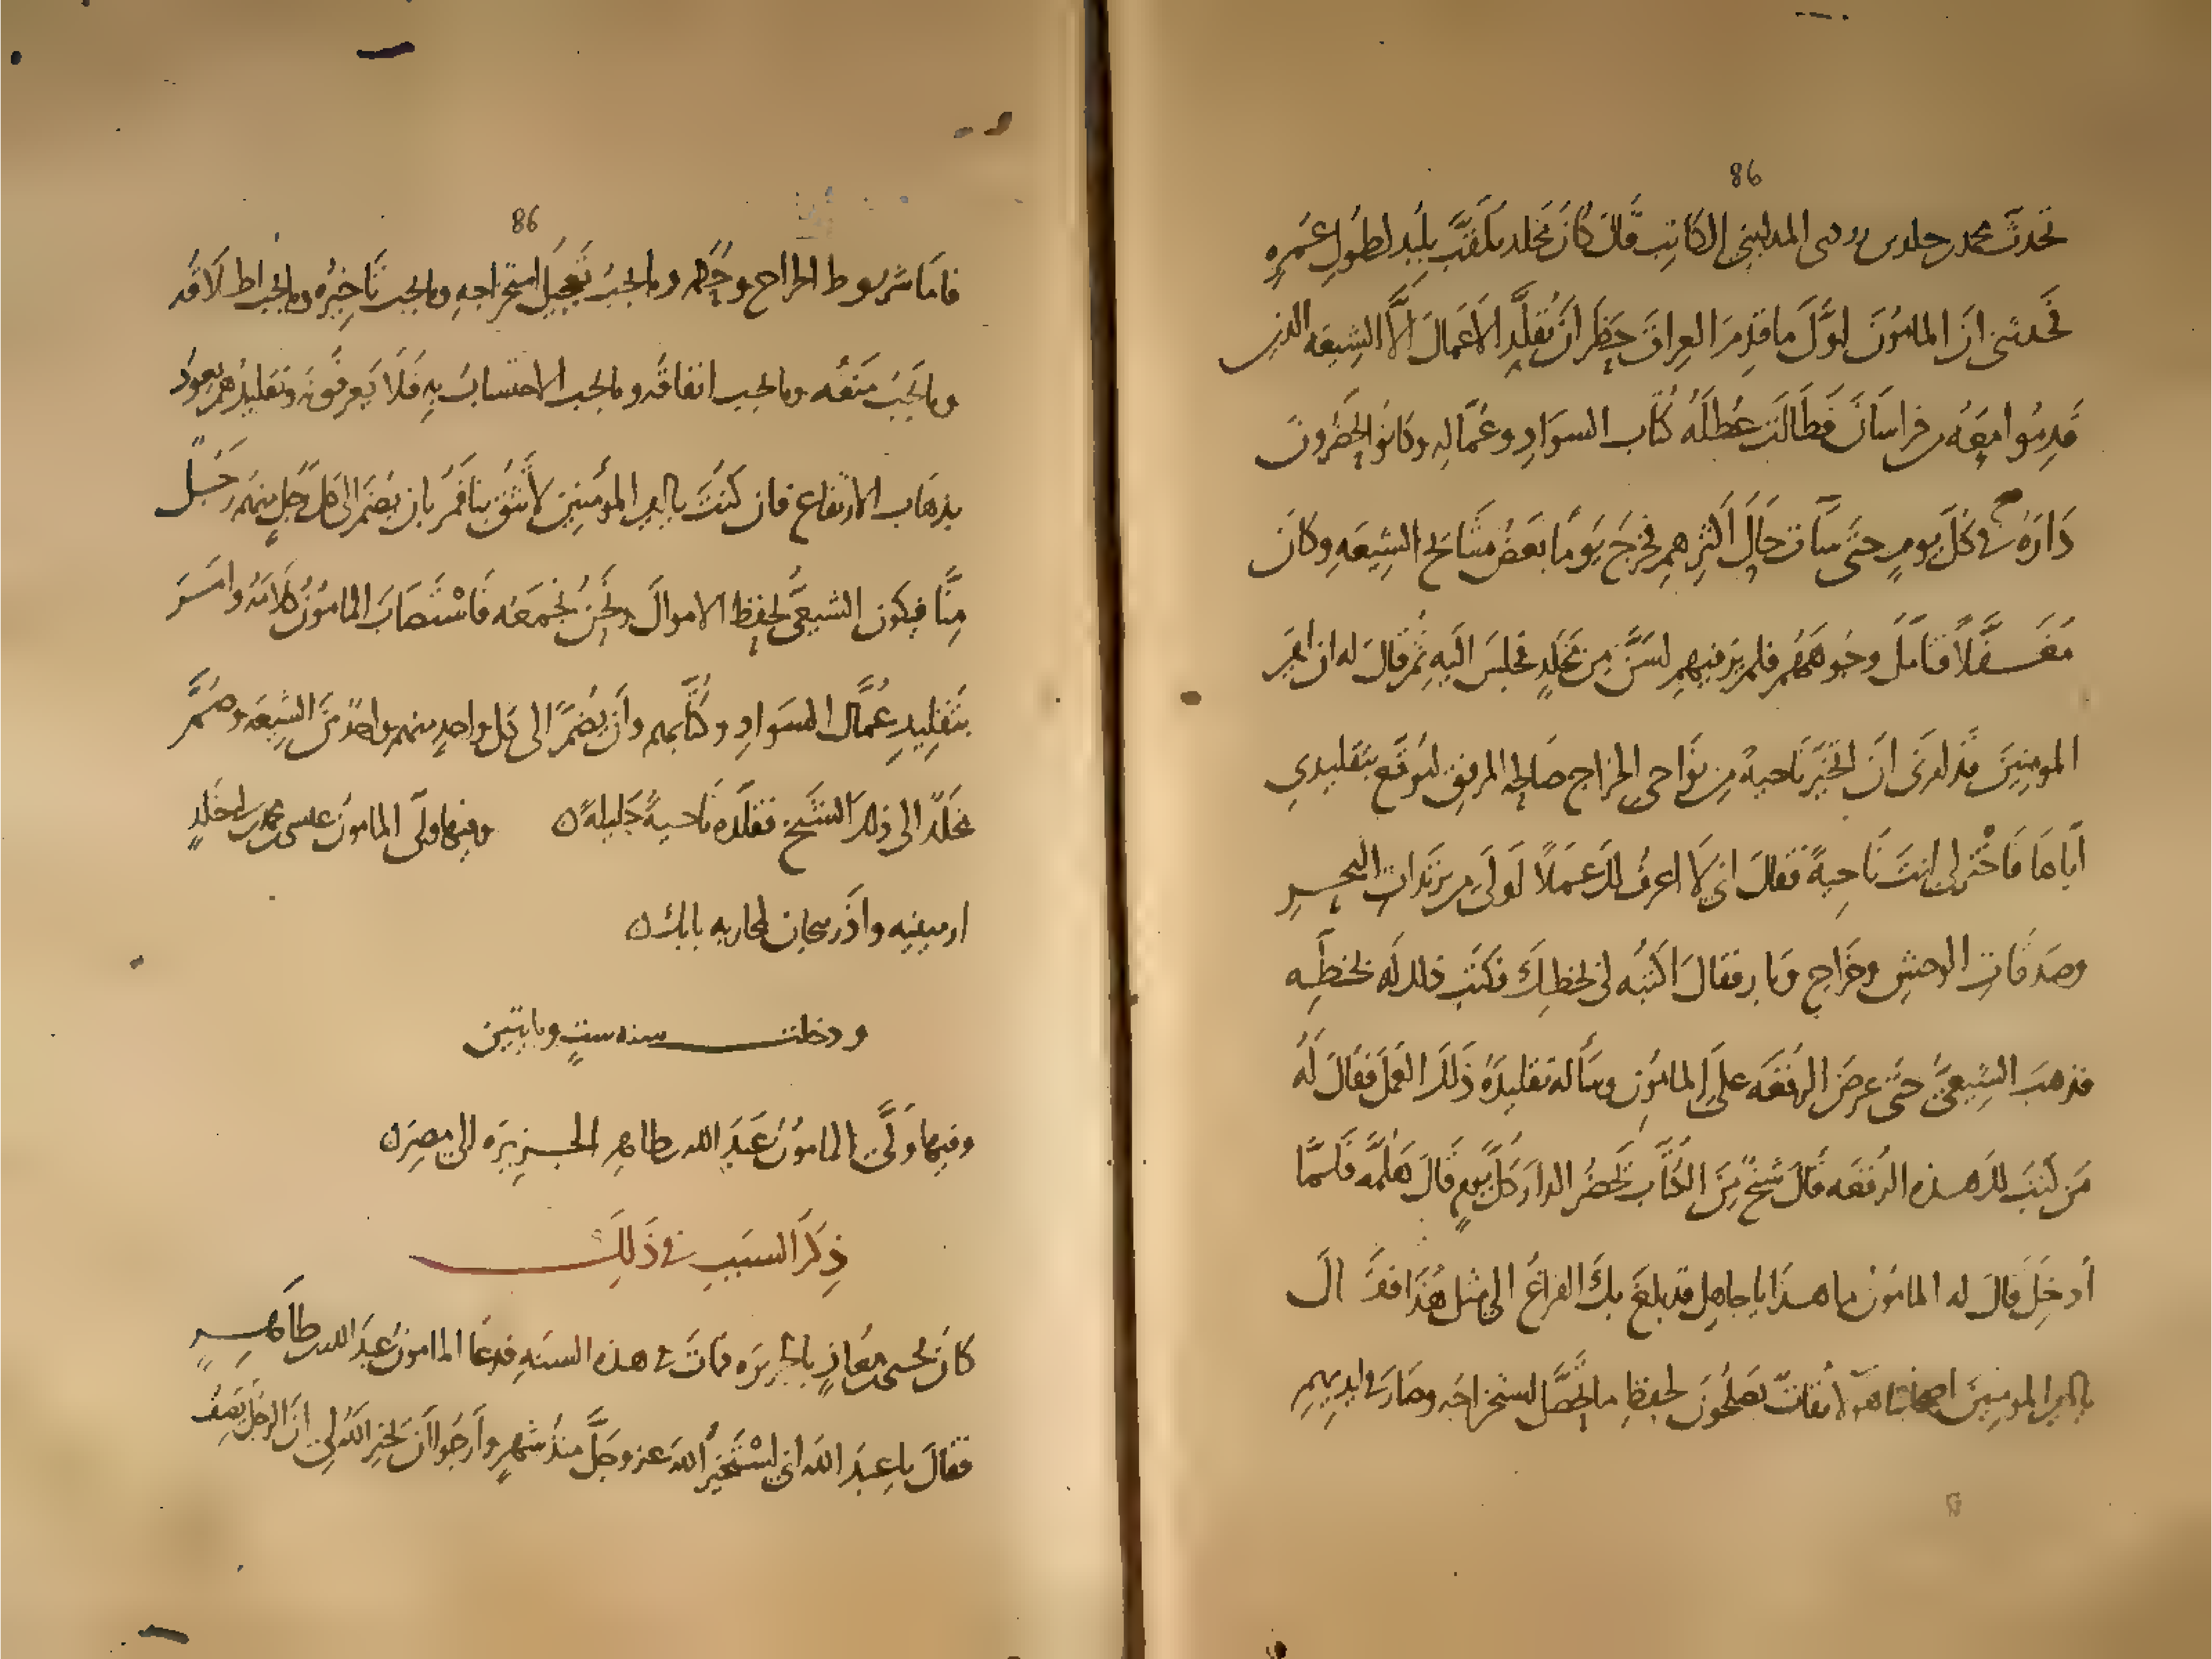 86
تحدث محمد المدايني الكاتب قال كان مخلد يلقب بلبد لطول عمره
فحدثني ان المامون اول ما قدم العراق حظر ان يقلد الاعمال الا الشيعه الذين
قدموا معه من خراسان فطالت عطله كتاب السواد وعماله وكانوا يحضرون
داره في كل يوم حتى ساءت حال اكثرهم فخرج يوما بعض مشايخ الشيعه وكان
مغفلا فتامل وجوههم فلم ير فيهم اسن من مخلد فجلس اليه ثم قال له ان امير
المومنين قد امرني ان اتخير ناحية من نواحي الخراج صالحه المرفق ليوقع بتقليدي
اياها فاختر لي انت ناحية فقال اني لا اعرف لك عملا اولى من البحر
وصدقات الوحش وخراج وبار فقال اكتبه لي بخطك فكتب ذلك له بخطه
فذهب الشيعي حتى عرض الرقعه على المامون وساله تقليده ذلك العمل فقال له
من كتب لك هذه الرقعه قال شيخ من الكتاب يحضر الدار كل يوم قال هلمه فلما
ادخل قال له المامون ما هذا يا جاهل قد بلغ بك الفراغ الى مثل هذا فقال
يا امير المومنين اصحابنا هولا ثقات يصلحون لحفظ ما يحصل استخراجه وصار في ايديهم
86
فاما شروط الخراج وحكمه وما يجب تعجيل استخراجه وما يجب تاخيره وما يجب اطلاقه
وما يجب منعه وما يجب انفاقه وما يجب الاحتساب به فلا يعرفونه وتقليدهم يعود
بذهاب الارتفاع فان كنت يا امير المؤمنين لا تثق بنا فمر بان يضم الى كل رجل منهم رجل
منا فيكون الشيعي يحفظ الاموال ونحن نجمعه فاستصاب المامون كلامه وامر
بتقليد عمال السواد وكتابهم وان يضم الى كل واحد منهم واحدا من الشيعه وضم
مخلدا الى ذلك الشيخ فقلده ناحية جليلة ه وفيها ولى المامون عيسى بن محمد بن ابي خالد
ارمينيه واذربيجان لمحاربه بابك ه
ودخلت سنه ست ومايتين
وفيها ولى المامون عبد الله بن طاهر الجزيره الى مصر ه
ذكر السبب في ذلك
كان يحيى بن معاذ بالجزيره فمات في هذه السنه فدعا المامون عبد الله بن طاهر
فقال يا عبد الله اني استخير الله عز وجل منذ شهر وارجو ان يخير الله لي ان الرجل يصف